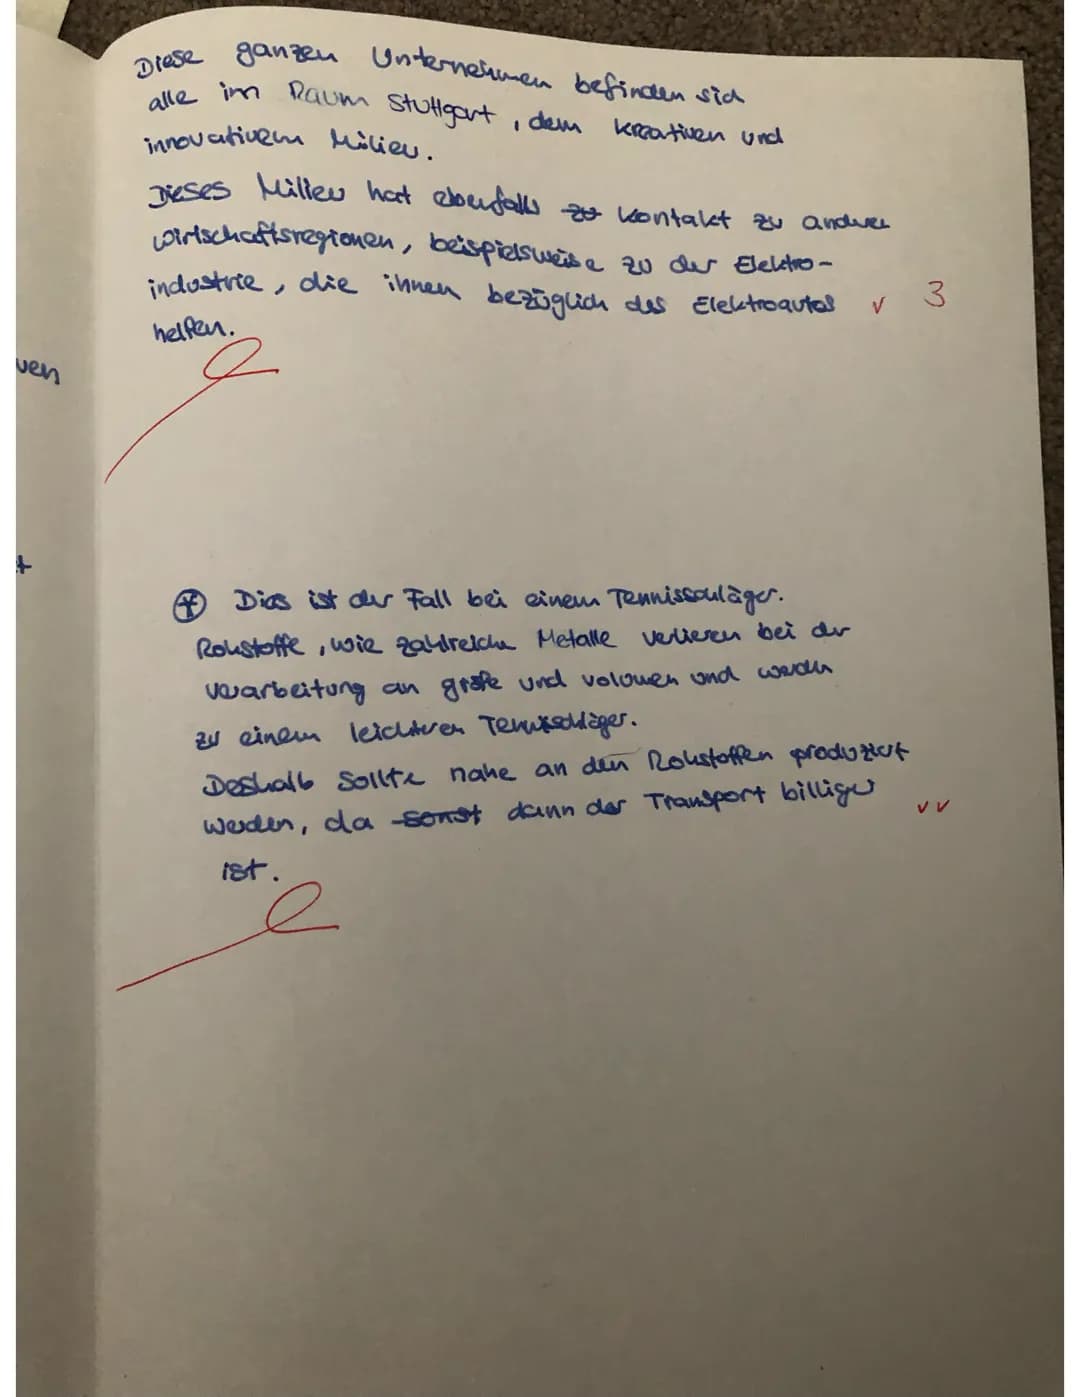 Diese ganzen Unternehmen befinden sich
alle im Raum Stuttgart, dem kreativen und
innovativem Milieu.
Dieses Milieu hat ebenfalls zu Kontakt zu andren
Wirtschaftsregionen, beispielsweise zu der Elektro-
industrie, die ihnen bezüglich des Elektroautos v 3
helfen.
ven
t
⊕ Dies ist der Fall bei einem Tennisschläger.
Rohstoffe, wie zahlreiche Metalle verlieren bei der
Verarbeitung an größe und volumen und werden
zu einem leichteren Tennisschläger.
Deshalb sollte nahe an den Rohstoffen produziert
werden, da sonst dann der Transport billiger vv
ist.